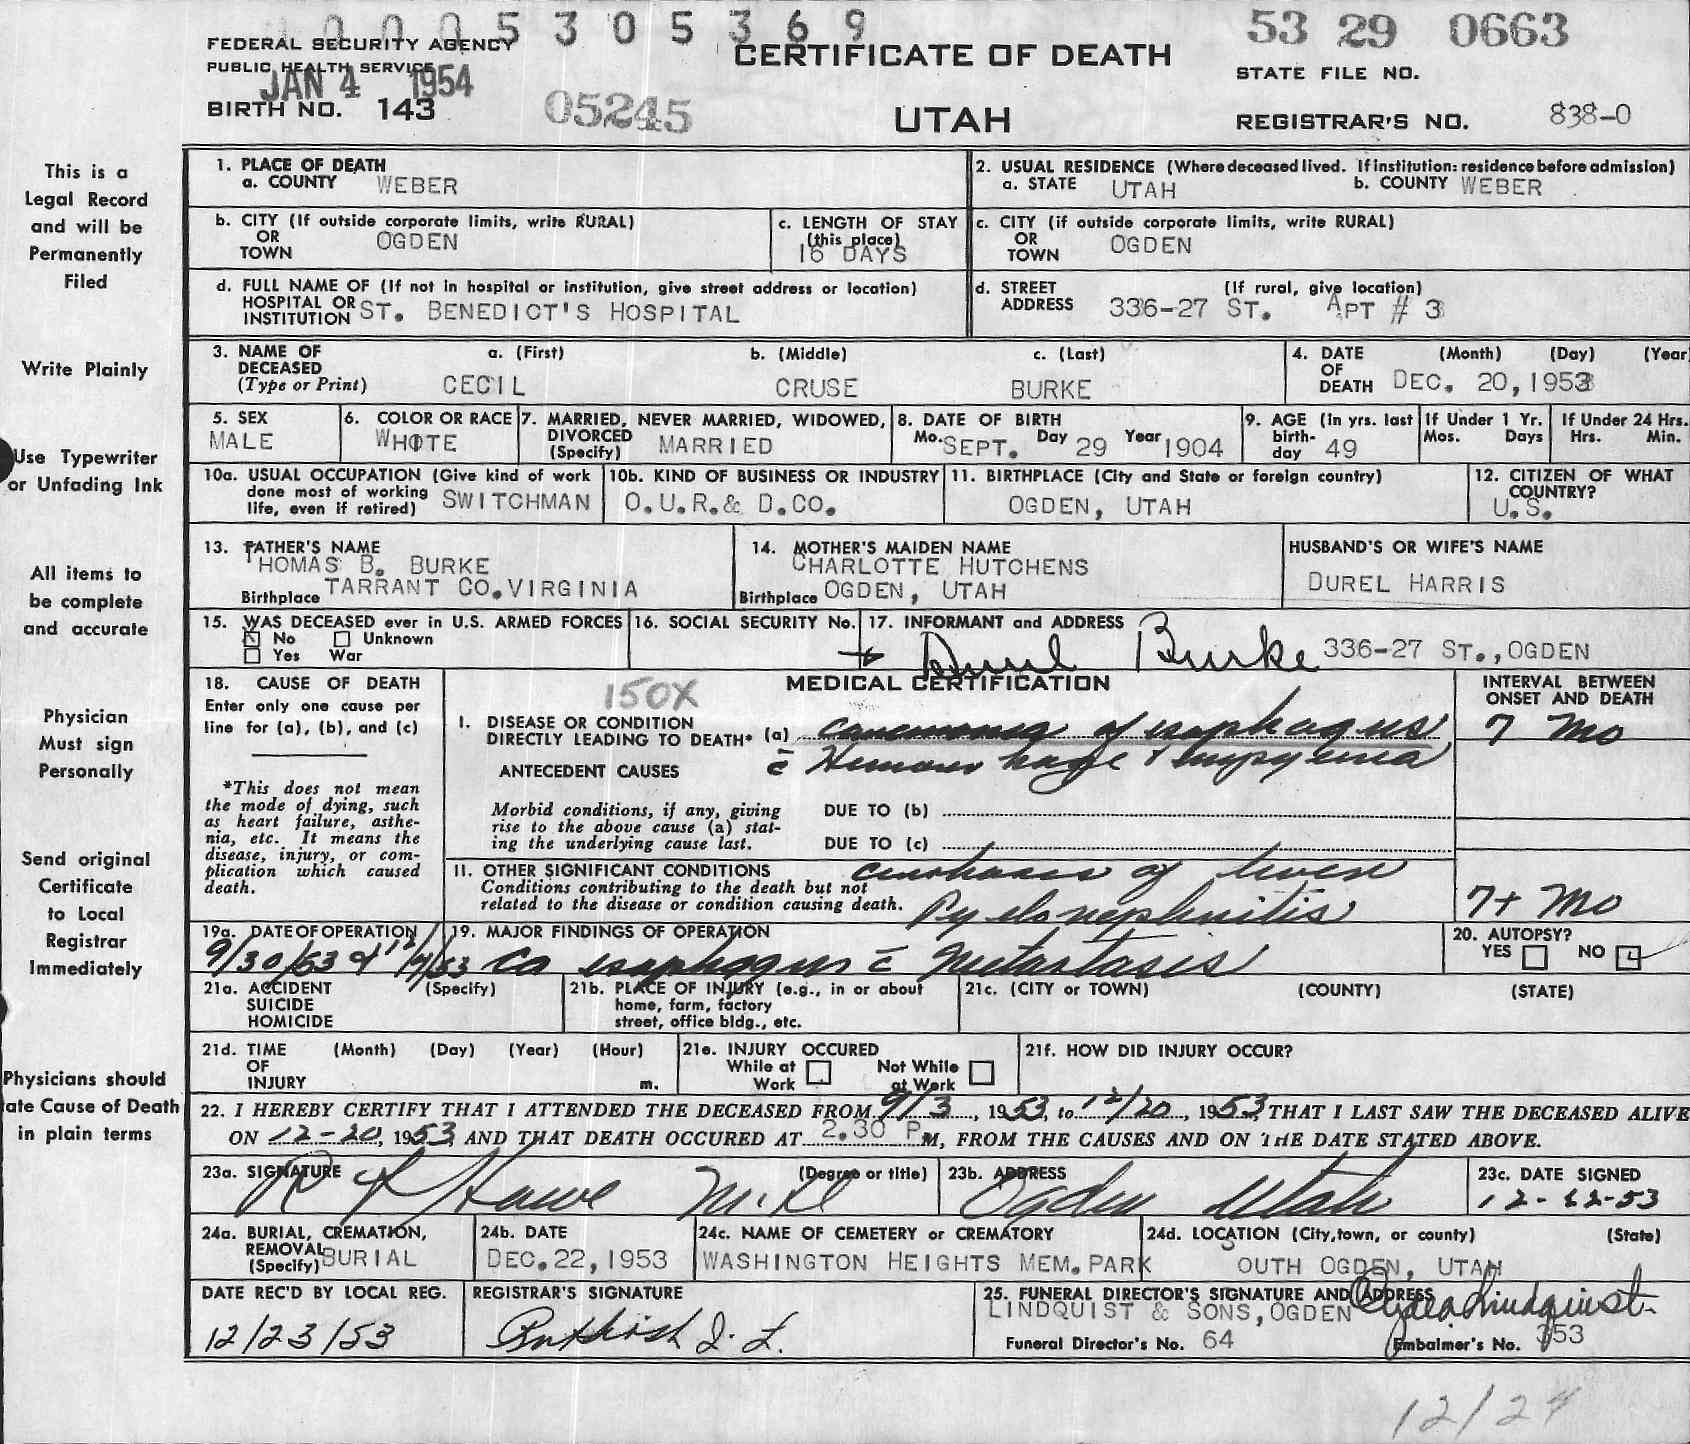 0005305369
53 29 0663
FEDERAL SECURITY AGENCY
PUBLIC HEALTH SERVICE
JAN 4 1954
CERTIFICATE OF DEATH
STATE FILE NO.
BIRTH NO. 143
05245
UTAH
REGISTRAR'S NO. 838-0
This is a
Legal Record
and will be
Permanently
Filed
Write Plainly
Use Typewriter
or Unfading Ink
All items to
be complete
and accurate
Physician
Must sign
Personally
Send original
Certificate
to Local
Registrar
Immediately
Physicians should
ate Cause of Death
in plain terms
1. PLACE OF DEATH
a. COUNTY WEBER
2. USUAL RESIDENCE (Where deceased lived. If institution: residence before admission)
a. STATE UTAH b. COUNTY WEBER
b. CITY (If outside corporate limits, write RURAL)
OR
TOWN OGDEN
c. LENGTH OF STAY
(this place)
16 DAYS
c. CITY (if outside corporate limits, write RURAL)
OR
TOWN OGDEN
d. FULL NAME OF (If not in hospital or institution, give street address or location)
HOSPITAL OR
INSTITUTION ST. BENEDICT'S HOSPITAL
d. STREET (If rural, give location)
ADDRESS 336-27 ST. APT # 3
3. NAME OF
DECEASED
(Type or Print)
a. (First) b. (Middle) c. (Last)
CECIL CRUSE BURKE
4. DATE (Month) (Day) (Year)
OF
DEATH DEC. 20, 1953
5. SEX
MALE
6. COLOR OR RACE
WHOTE
7. MARRIED, NEVER MARRIED, WIDOWED,
DIVORCED
(Specify) MARRIED
8. DATE OF BIRTH
Mo. SEPT. Day 29 Year 1904
9. AGE (in yrs. last
birth-
day 49
If Under 1 Yr.
Mos. Days
If Under 24 Hrs.
Hrs. Min.
10a. USUAL OCCUPATION (Give kind of work
done most of working
life, even if retired) SWITCHMAN
10b. KIND OF BUSINESS OR INDUSTRY
O.U.R.& D.CO.
11. BIRTHPLACE (City and State or foreign country)
OGDEN, UTAH
12. CITIZEN OF WHAT
COUNTRY?
U.S.
13. FATHER'S NAME
THOMAS B. BURKE
Birthplace TARRANT CO.VIRGINIA
14. MOTHER'S MAIDEN NAME
CHARLOTTE HUTCHENS
Birthplace OGDEN, UTAH
HUSBAND'S OR WIFE'S NAME
DUREL HARRIS
15. WAS DECEASED ever in U.S. ARMED FORCES
No Unknown
Yes War
16. SOCIAL SECURITY No.
17. INFORMANT and ADDRESS
Durel Burke 336-27 ST., OGDEN
18. CAUSE OF DEATH
Enter only one cause per
line for (a), (b), and (c)
*This does not mean
the mode of dying, such
as heart failure, asthe-
nia, etc. It means the
disease, injury, or com-
plication which caused
death.
150X
MEDICAL CERTIFICATION
INTERVAL BETWEEN
ONSET AND DEATH
I. DISEASE OR CONDITION
DIRECTLY LEADING TO DEATH* (a) carcinoma of esophagus 7 Mo
ANTECEDENT CAUSES c̄ Hemorrhage + empyema
Morbid conditions, if any, giving
rise to the above cause (a) stat-
ing the underlying cause last.
DUE TO (b)
DUE TO (c)
11. OTHER SIGNIFICANT CONDITIONS
Conditions contributing to the death but not
related to the disease or condition causing death.
cirrhosis of liver
Pyelonephritis 7+ Mo
19a. DATE OF OPERATION
9/30/53 & 12/4/53
19. MAJOR FINDINGS OF OPERATION
Ca esophagus c̄ Metastasis
20. AUTOPSY?
YES NO
21a. ACCIDENT (Specify)
SUICIDE
HOMICIDE
21b. PLACE OF INJURY (e.g., in or about
home, farm, factory
street, office bldg., etc.
21c. (CITY or TOWN) (COUNTY) (STATE)
21d. TIME (Month) (Day) (Year) (Hour)
OF
INJURY m.
21e. INJURY OCCURED
While at Work Not While at Work
21f. HOW DID INJURY OCCUR?
22. I HEREBY CERTIFY THAT I ATTENDED THE DECEASED FROM 9/3, 1953, to 12/20, 1953, THAT I LAST SAW THE DECEASED ALIVE
ON 12-20, 1953, AND THAT DEATH OCCURED AT 2.30 P M, FROM THE CAUSES AND ON THE DATE STATED ABOVE.
23a. SIGNATURE (Degree or title)
Howe M.D.
23b. ADDRESS
Ogden Utah
23c. DATE SIGNED
12-22-53
24a. BURIAL, CREMATION,
REMOVAL
(Specify) BURIAL
24b. DATE
DEC.22,1953
24c. NAME OF CEMETERY OR CREMATORY
WASHINGTON HEIGHTS MEM.PARK
24d. LOCATION (City,town, or county) (State)
SOUTH OGDEN, UTAH
DATE REC'D BY LOCAL REG.
12/23/53
REGISTRAR'S SIGNATURE
25. FUNERAL DIRECTOR'S SIGNATURE AND ADDRESS
LINDQUIST & SONS, OGDEN Lindquist
Funeral Director's No. 64 Embalmer's No. 353
12/24